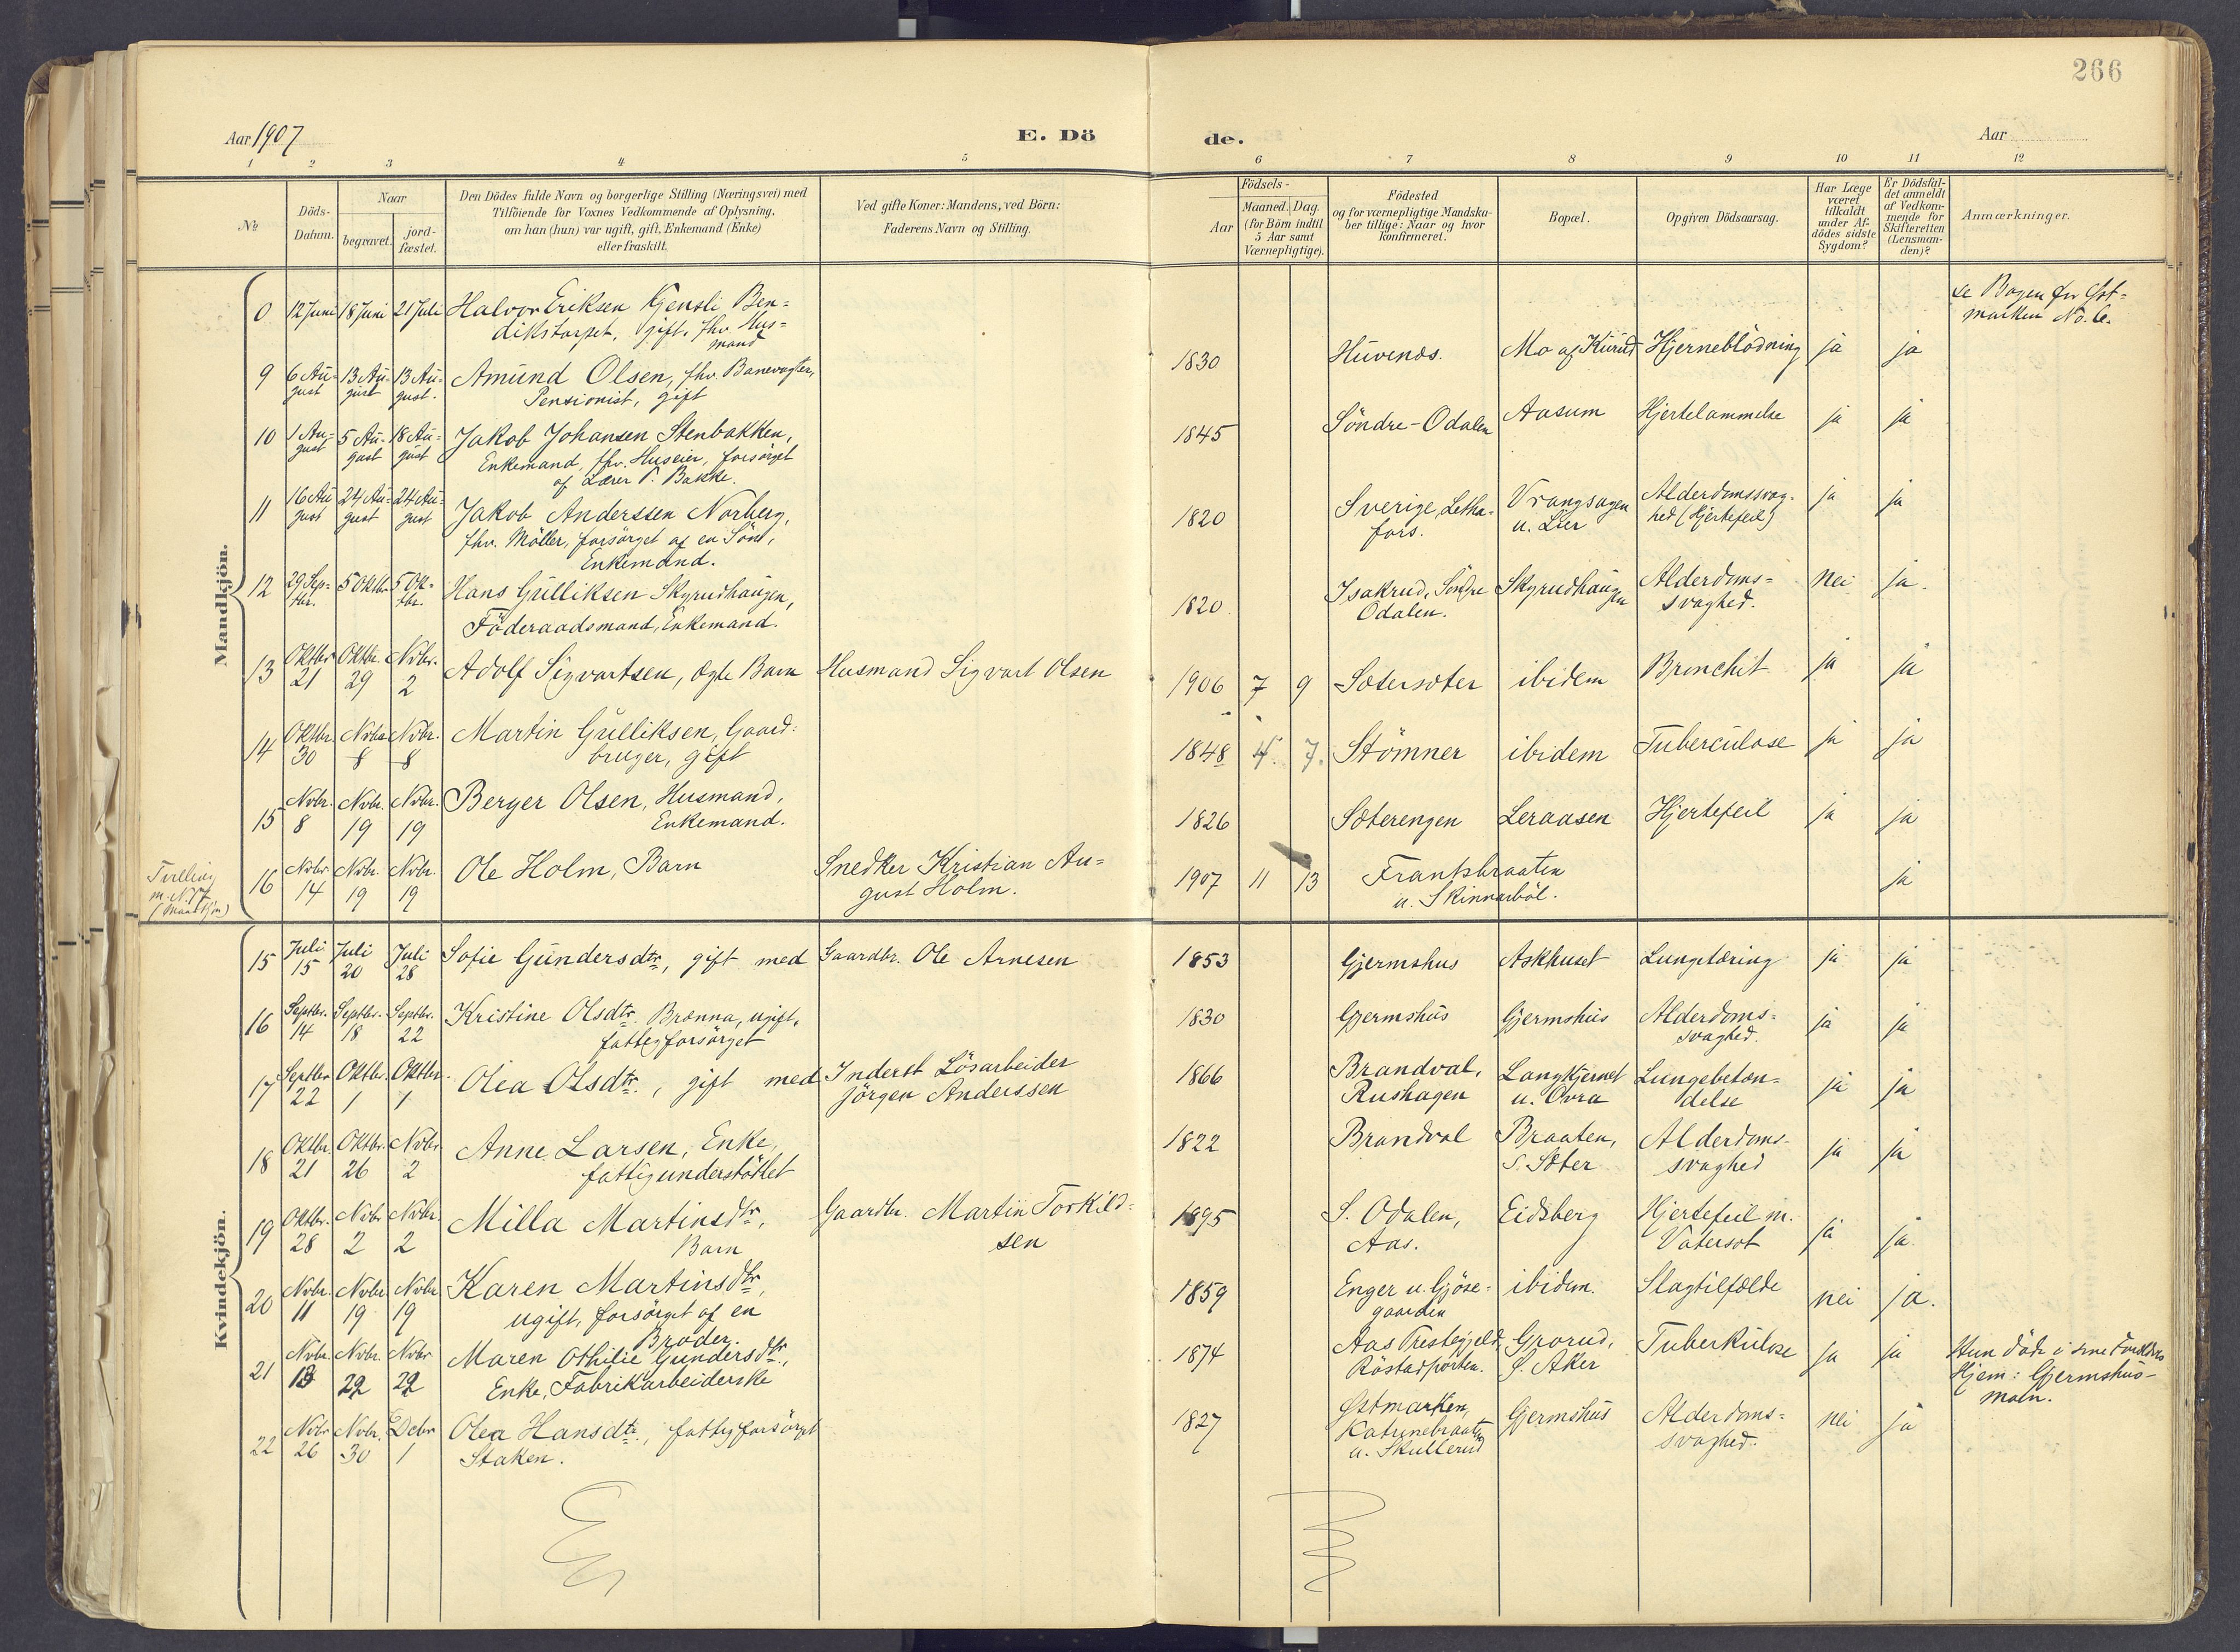 266
Aar 1907
E. Dö
de.
Aar
1 2 3 4 5 6 7 8 9 10 11 12
No
Döds-
Datum.
Naar
begravet.
jord-
fæstet.
Den Dödes fulde Navn og borgerlige Stilling (Næringsvei) med
Tilföiende for Voxnes Vedkommende af Oplysning,
om han (hun) var ugift, gift, Enkemand (Enke)
eller fraskilt.
Ved gifte Koner: Mandens, ved Börn:
Faderens Navn og Stilling.
Födsels-
Aar
Maaned. Dag.
(for Börn indtil
5 Aar samt
Værnepligtige).
Födested
og for værnepligtige Mandska-
ber tillige: Naar og hvor
konfirmeret.
Bopæl.
Opgiven Dödsaarsag.
Har Læge
været
tilkaldt
under Af-
dödes sidste
Sygdom?
Er Dödsfal-
det anmeldt
af Vedkom-
mende for
Skifteretten
(Lensman-
den)?
Anmærkninger.
Mandkjön.
0 12 Juni 18 Juni 21 Juli Halvor Eriksen Kjensli Ben=
dikstorpet, gift, fhv. Hus=
mand
1830 Huvenæs. Mo af Kurud Hjerneblödning ja ja
se Bogen for Øst=
marken No. 6.
9 6 Au=
gust 13 Au=
gust 13 Au=
gust. Amund Olsen, fhv. Banevogter,
Pensionist, gift
1845 Söndre-Odalen Aasum Hjertelammelse ja ja
10 1 Au=
gust 5 Au=
gust 18 Au=
gust Jakob Johansen Stenbakken,
Enkemand, fhv. Huseier, forsörget
af Lærer P. Bakke.
1820 Sverige, Letha=
fors. Vrangsagen
u. Lier Alderdomssvag-
hed (Hjertefeil) ja ja
11 16 Au
gust 24 Au=
gust 24 Au=
gust Jakob Anderssen Norberg,
fhv. Möller, forsörget af en Sön,
Enkemand.
1820 Isakrud, Söndre
Odalen. Skyrudhaugen Alderdoms=
svaghed. nei ja.
12 29 Sep=
tbr. 5 Oktbr 5 Ok=
tbr. Hans Gulliksen Skyrudhaugen,
Föderaadsmand, Enkemand.
13 Oktbr
21 Oktbr.
29 Nvbr.
2 Adolf Sigvartsen, ægte Barn Husmand Sigvart Olsen
1906 7 9 Sætersæter ibidem Bronchit ja ja
14 Oktbr.
30 Nvbr
8 Nvbr.
8 Martin Gulliksen, Gaard:
bruger, gift
1848 4. 7. Stömner ibidem Tuberculose ja ja
15 Nvbr.
8 Nvbr.
19 Nvbr.
19 Berger Olsen, Husmand,
Enkemand.
1826 Sæterengen Leraasen Hjertefeil ja ja
Tvilling
m. N. 17
(Mandkjön)
16 Nvbr
14 Nvbr.
19 Nvbr.
19 Ole Holm, Barn Snedker Kristian Au=
gust Holm.
1907 11 13 Frantsbraaten
u. Skinnarböl. ja
Kvindekjön.
15 Juli
15 Juli
20 Juli
28 Sofie Gundersdtr, gift med Gaardbr. Ole Arnesen
1853 Gjermshus Askhuset Lungetæring ja ja
16 Septbr.
14 Septbr.
18 Septbr.
22 Kristine Olsdtr. Brænna, ugift,
fattigforsörget
1830 Gjermshus Gjermshus Alderdoms=
svaghed. ja ja
17 Septbr
22 Oktbr.
1 Oktbr.
1 Olea Olsdtr., gift med Inderst Lösarbeider
Jörgen Anderssen
1866 Brandval,
Rushagen Langkjernet
u. Overa Lungebetæn=
delse ja ja
18 Oktbr.
21 Oktbr.
26 Nvbr
2 Anne Larsen, Enke,
fattigunderstöttet
1822 Brandval Braaten,
S. Sæter Alderdoms-
svaghed ja ja
19 Oktbr.
28 Nvbr
2 Nvbr.
2 Milla Martinsdtr,
Barn Gaardbr. Martin Torkild=
sen
1895 S. Odalen,
Aas. Eidsberg Hjertefeil m.
Vatersot ja ja
20 Nvbr.
11 Nvbr
19 Nvbr
19 Karen Martinsdtr,
ugift, forsörget af en
Broder.
1859 Enger u. Gjöse=
gaarden ibidem. Slagtilfælde nei ja.
21 Nvbr.
13 Nvbr.
22 Nvbr
22 Maren Othilie Gundersdtr,
Enke, Fabrikarbeiderske
1874 Aas Prestegjeld,
Röstadporten. Grorud,
Ö. Aker Tuberkulose ja ja Hun döde i sine Forældres
Hjem: Gjermshus-
moen.
22 Nvbr
26 Nvbr.
30 Dcbr
1 Olea Hansdtr., fattigforsörget
Staken.
1827 Østmarken,
Katrinebraaten
u. Skullerud Gjermshus Alderdoms=
svaghed. nei ja